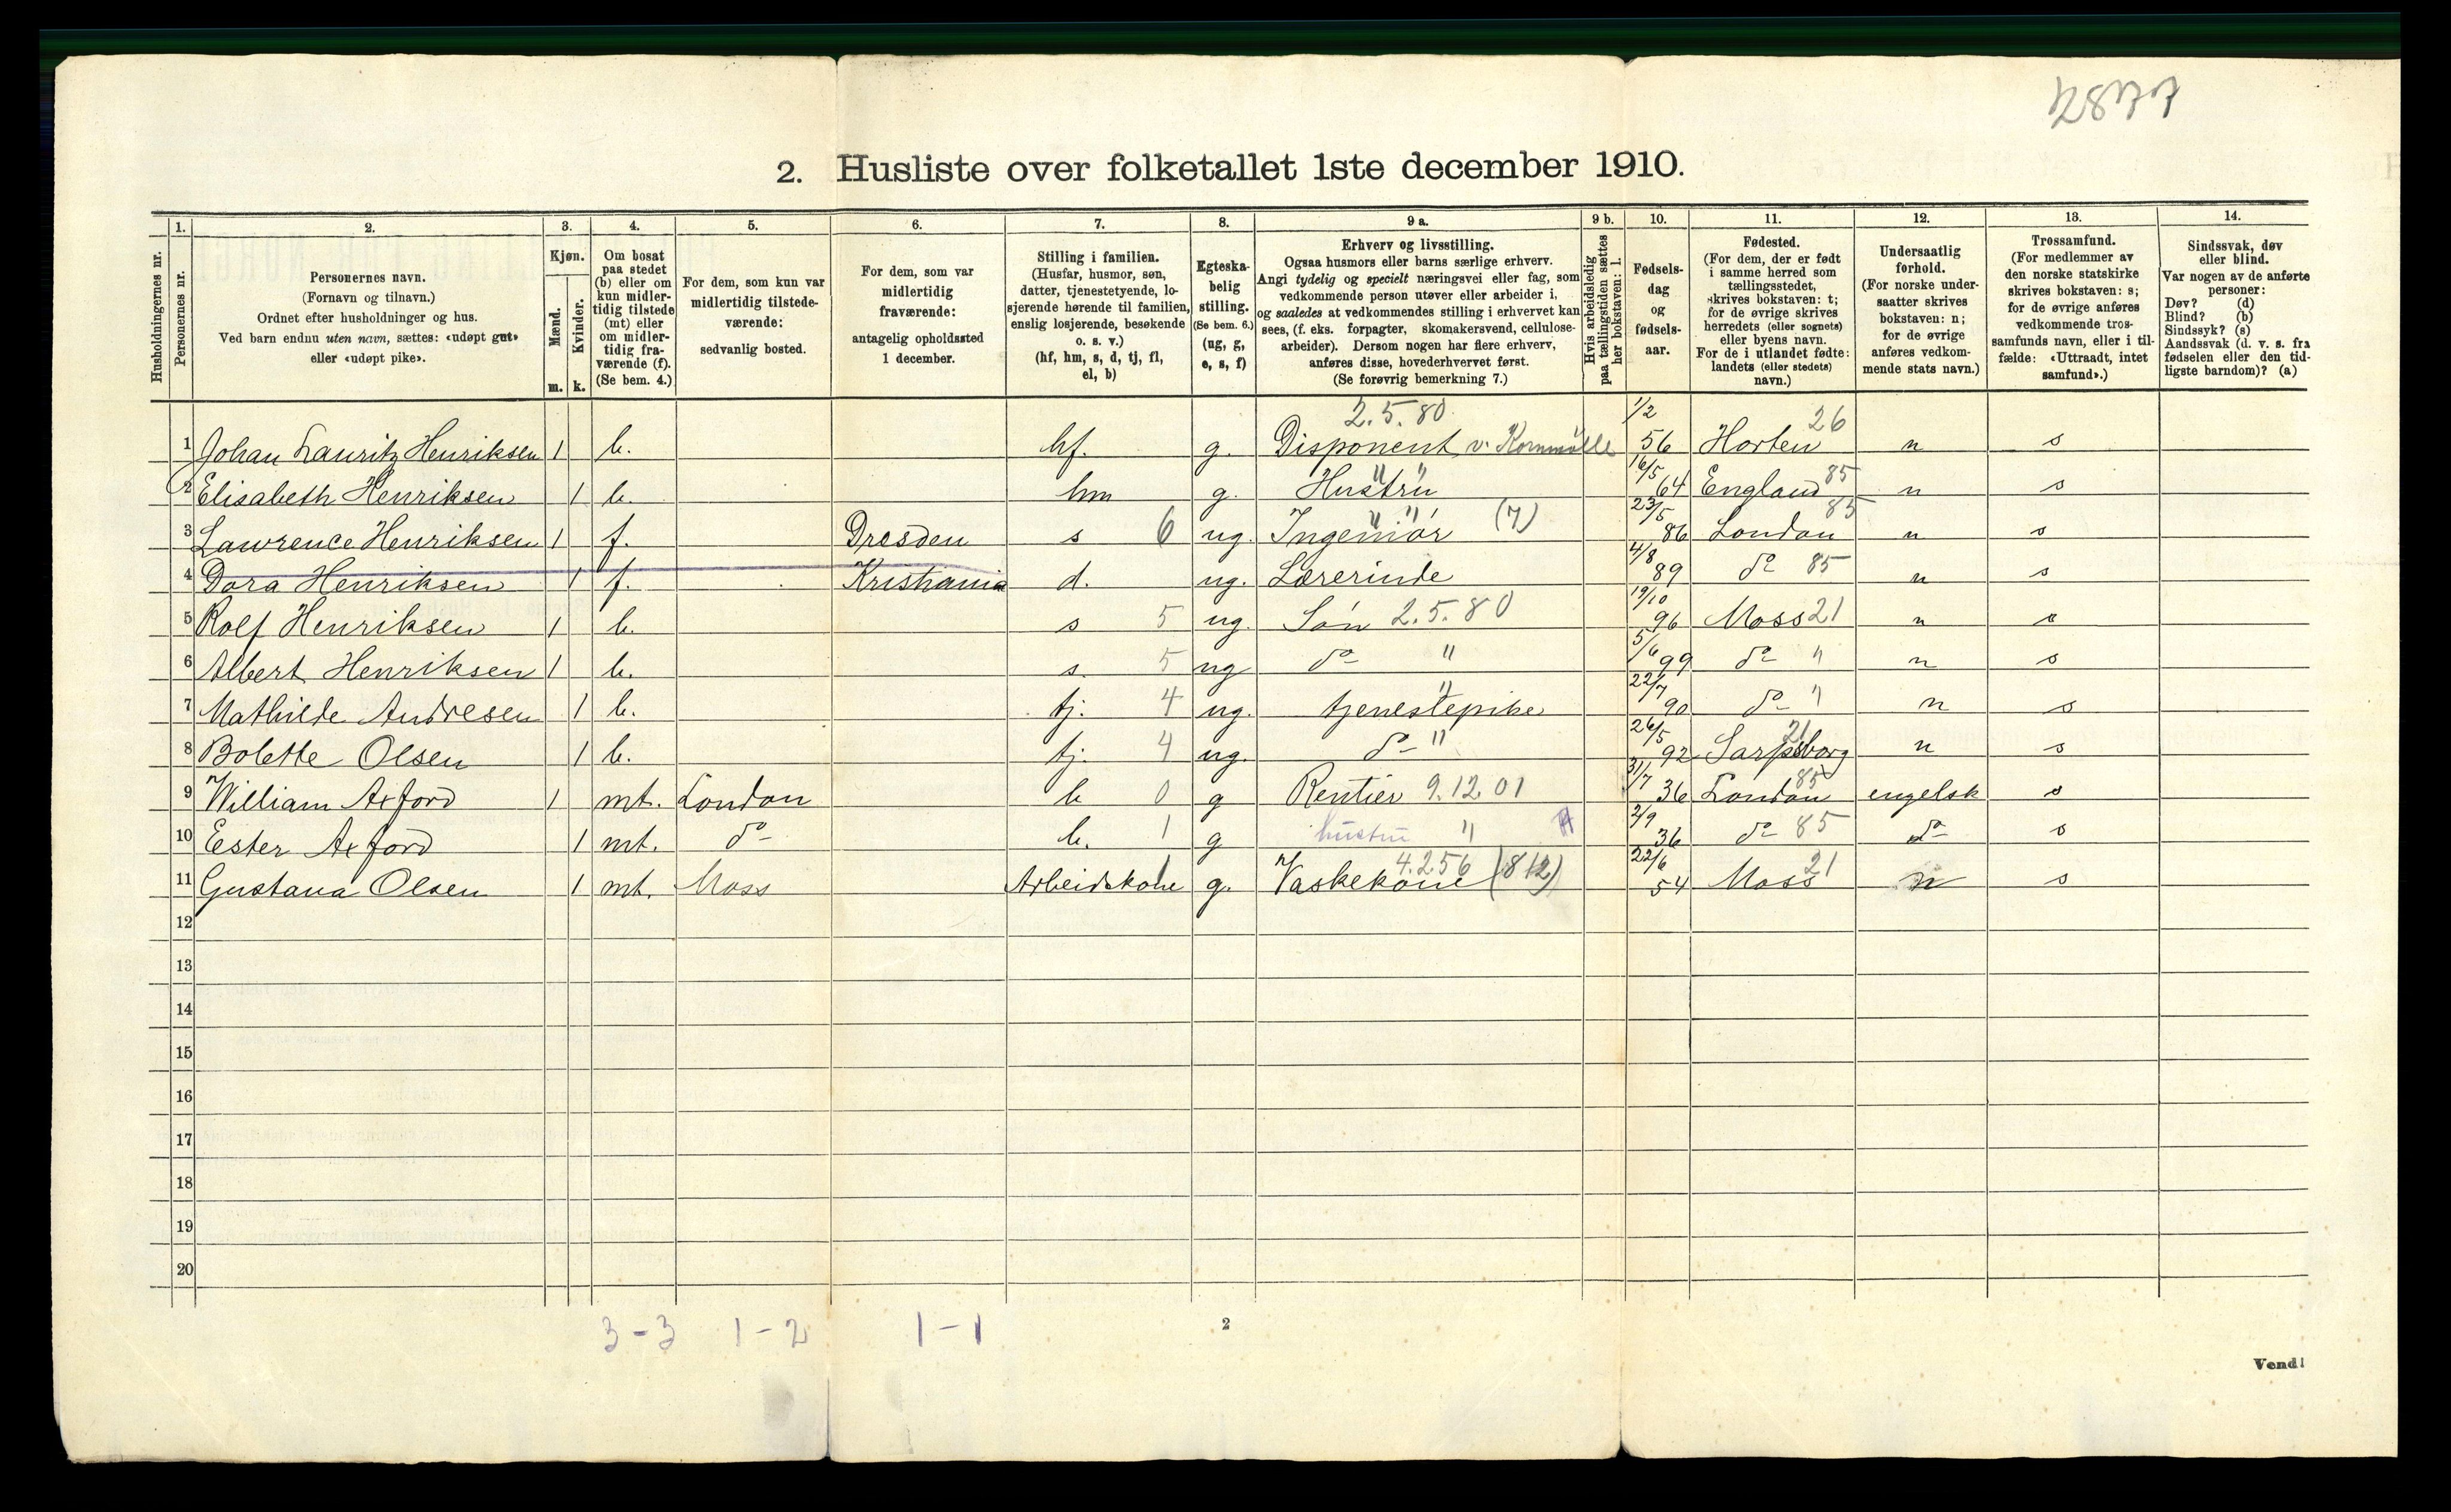 2877
2. Husliste over folketallet 1ste december 1910.
Husholdningernes nr.
1. Personernes nr.
2. Personernes navn. (Fornavn og tilnavn.) Ordnet efter husholdninger og hus. Ved barn endnu uten navn, sættes: «udøpt gut» eller «udøpt pike».
3. Kjøn. Mænd. m. Kvinder. k.
4. Om bosat paa stedet (b) eller om kun midlertidig tilstede (mt) eller om midlertidig fraværende (f). (Se bem. 4.)
5. For dem, som kun var midlertidig tilstedeværende: sedvanlig bosted.
6. For dem, som var midlertidig fraværende: antagelig opholdssted 1 december.
7. Stilling i familien. (Husfar, husmor, søn, datter, tjenestetyende, losjerende hørende til familien, enslig losjerende, besøkende o. s. v.) (hf, hm, s, d, tj, fl, el, b)
8. Egteskabelig stilling. (Se bem. 6.) (ug, g, e, s, f)
9 a. Erhverv og livsstilling. Ogsaa husmors eller barns særlige erhverv. Angi tydelig og specielt næringsvei eller fag, som vedkommende person utøver eller arbeider i, og saaledes at vedkommendes stilling i erhvervet kan sees, (f. eks. forpagter, skomakersvend, cellulosearbeider). Dersom nogen har flere erhverv, anføres disse, hovederhvervet først. (Se forøvrig bemerkning 7.)
9 b. Hvis arbeidsledig paa tællingstiden sættes her bokstaven: l.
10. Fødselsdag og fødselsaar.
11. Fødested. (For dem, der er født i samme herred som tællingsstedet, skrives bokstaven: t; for de øvrige skrives herredets (eller sognets) eller byens navn. For de i utlandet fødte: landets (eller stedets) navn.)
12. Undersaatlig forhold. (For norske undersaatter skrives bokstaven: n; for de øvrige anføres vedkommende stats navn.)
13. Trossamfund. (For medlemmer av den norske statskirke skrives bokstaven: s; for de øvrige anføres vedkommende trossamfunds navn, eller i tilfælde: «Uttraadt, intet samfund».)
14. Sindssvak, døv eller blind. Var nogen av de anførte personer: Døv? (d) Blind? (b) Sindssyk? (s) Aandssvak (d. v. s. fra fødselen eller den tidligste barndom)? (a)
2.5.80 1/2 26
1 Johan Lauritz Henriksen 1 b. hf. g. Disponent v. Kornmölle 56 Horten n s
2 Elisabeth Henriksen 1 b. hm g. Hustru " " 16/5 64 England 85 n s
3 Lawrence Henriksen 1 f. Dresden s 6 ug. Ingeniör " " (7) 23/5 86 London 85 n s
4 Dora Henriksen 1 f. Kristiania d. ug. Lærerinde 4/8 89 do 85 n s
5 Rolf Henriksen 1 b. s 5 ug. Sön 2.5.80 19/10 96 Moss 21 n s
6 Albert Henriksen 1 b. s. 5 ug do " 5/6 99 do " n s
7 Mathilde Andresen 1 b. tj. 4 ug. tjenestepike " 22/7 90 do " n s
8 Bolette Olsen 1 b. tj. 4 ug. do " 26/5 92 Sarpsborg 21 n s
9 William Axford 1 mt. London b 0 g Rentier 9.12.01 31/7 36 London 85 engelsk s
10 Ester Axford 1 mt. do b. 1 g hustru " 2/9 36 do 85 do s
11 Gustava Olsen 1 mt. Moss Arbeidskone g. Vaskekone 4.256 (812) 22/6 54 Moss 21 n s
12
13
14
15
16
17
18
19
20
3-3 1-2 1-1
2
Vend!